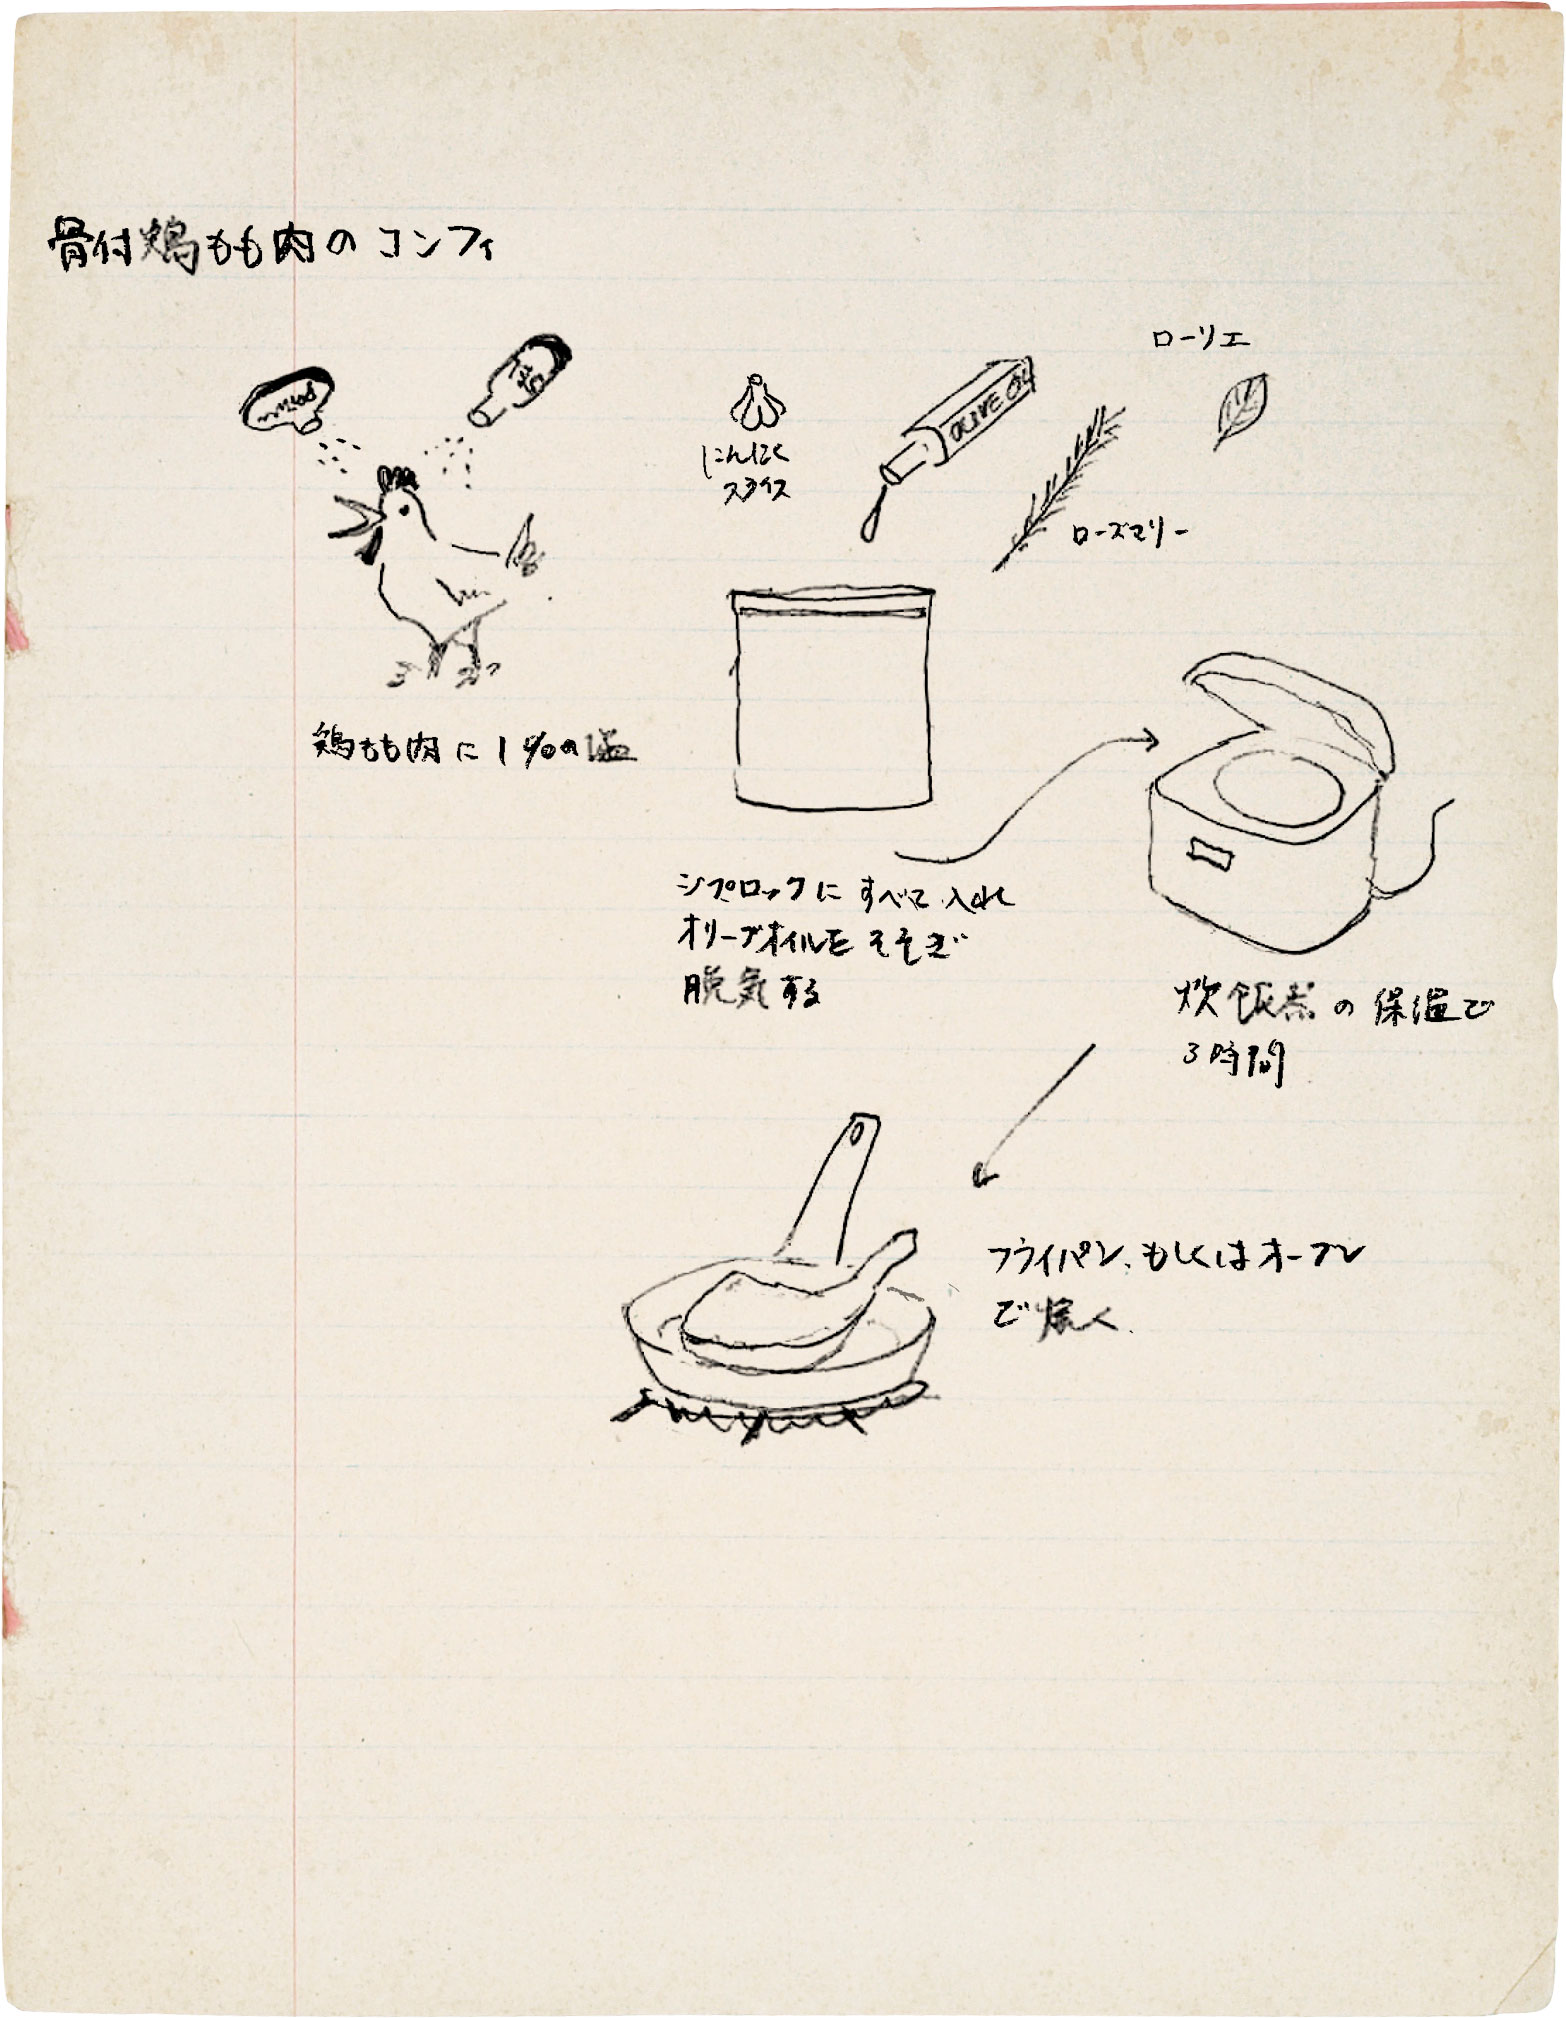 骨付鶏もも肉のコンフィ
ローリエ
OLIVE OIL
にんにく
スライス
ローズマリー
鶏もも肉に1%の塩
ジプロックにすべて入れ
オリーブオイルをそそぎ
脱気する
炊飯器の保温で
3時間
フライパン、もしくはオーブン
で焼く